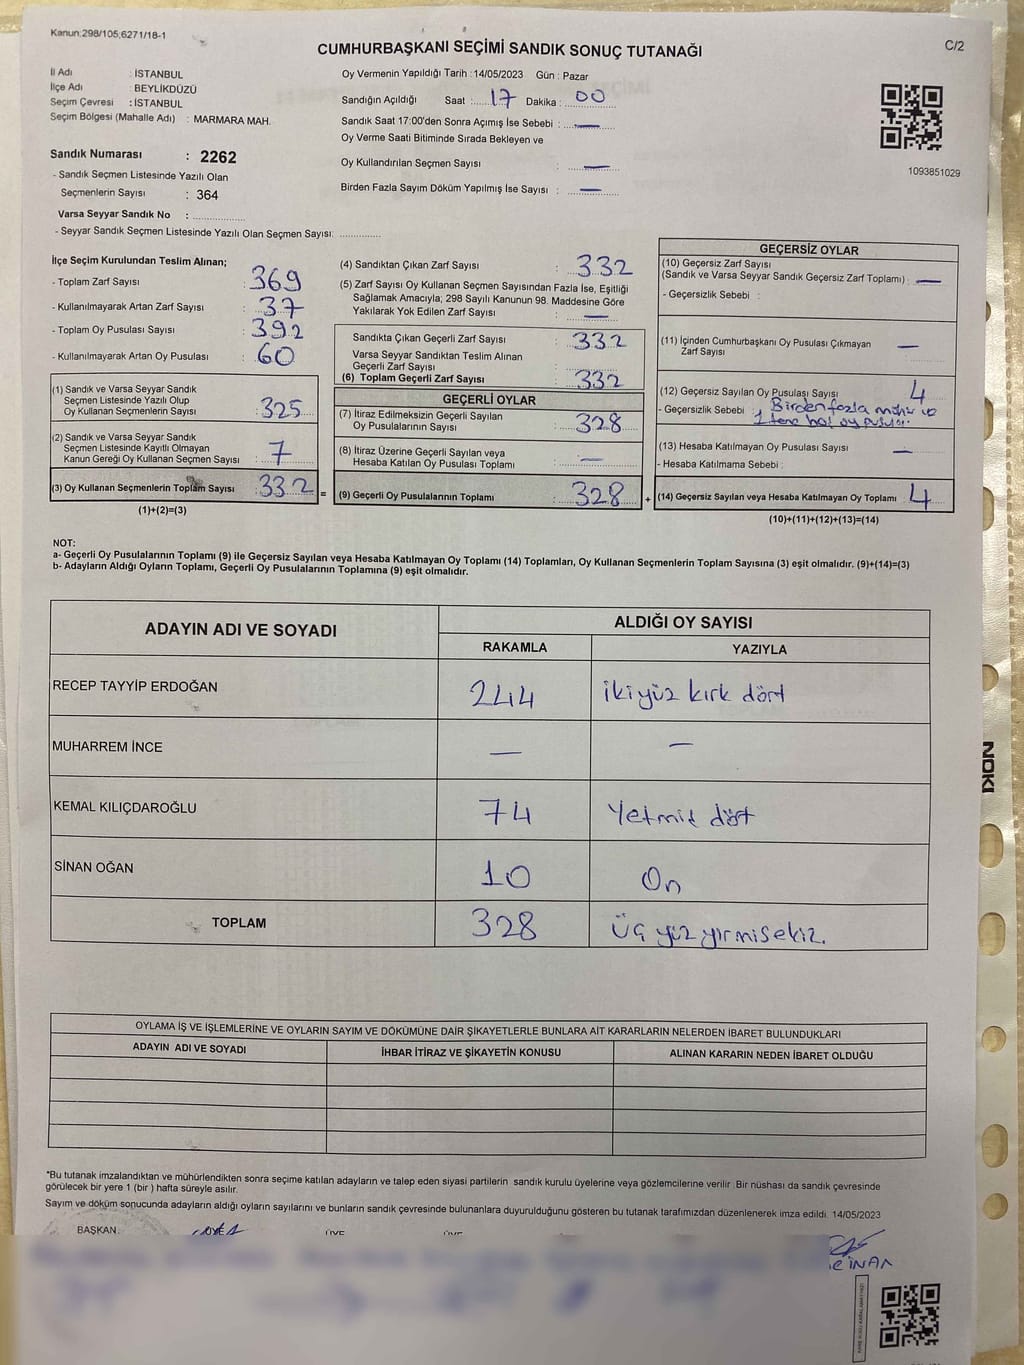 Kanun:298/105;6271/18-1
C/2
CUMHURBAŞKANI SEÇİMİ SANDIK SONUÇ TUTANAĞI
İl Adı : İSTANBUL
İlçe Adı : BEYLİKDÜZÜ
Seçim Çevresi : İSTANBUL
Seçim Bölgesi (Mahalle Adı) : MARMARA MAH.
Sandık Numarası : 2262
- Sandık Seçmen Listesinde Yazılı Olan
Seçmenlerin Sayısı : 364
Varsa Seyyar Sandık No :
- Seyyar Sandık Seçmen Listesinde Yazılı Olan Seçmen Sayısı:
Oy Vermenin Yapıldığı Tarih :14/05/2023 Gün : Pazar
Sandığın Açıldığı Saat : 17 Dakika : 00
Sandık Saat 17:00'den Sonra Açımış İse Sebebi : —
Oy Verme Saati Bitiminde Sırada Bekleyen ve
Oy Kullandırılan Seçmen Sayısı : —
Birden Fazla Sayım Döküm Yapılmış İse Sayısı : —
1093851029
İlçe Seçim Kurulundan Teslim Alınan;
- Toplam Zarf Sayısı : 369
- Kullanılmayarak Artan Zarf Sayısı : 37
- Toplam Oy Pusulası Sayısı : 392
- Kullanılmayarak Artan Oy Pusulası : 60
(1) Sandık ve Varsa Seyyar Sandık
Seçmen Listesinde Yazılı Olup
Oy Kullanan Seçmenlerin Sayısı : 325
(2) Sandık ve Varsa Seyyar Sandık
Seçmen Listesinde Kayıtlı Olmayan
Kanun Gereği Oy Kullanan Seçmen Sayısı : 7
(3) Oy Kullanan Seçmenlerin Toplam Sayısı : 332 =
(1)+(2)=(3)
(4) Sandıktan Çıkan Zarf Sayısı : 332
(5) Zarf Sayısı Oy Kullanan Seçmen Sayısından Fazla İse, Eşitliği
Sağlamak Amacıyla; 298 Sayılı Kanunun 98. Maddesine Göre
Yakılarak Yok Edilen Zarf Sayısı : —
Sandıkta Çıkan Geçerli Zarf Sayısı : 332
Varsa Seyyar Sandıktan Teslim Alınan
Geçerli Zarf Sayısı :
(6) Toplam Geçerli Zarf Sayısı : 332
GEÇERLİ OYLAR
(7) İtiraz Edilmeksizin Geçerli Sayılan
Oy Pusulalarının Sayısı : 328
(8) İtiraz Üzerine Geçerli Sayılan veya
Hesaba Katılan Oy Pusulası Toplamı : —
(9) Geçerli Oy Pusulalarının Toplamı : 328 +
GEÇERSİZ OYLAR
(10) Geçersiz Zarf Sayısı
(Sandık ve Varsa Seyyar Sandık Geçersiz Zarf Toplamı) : —
- Geçersizlik Sebebi :
(11) İçinden Cumhurbaşkanı Oy Pusulası Çıkmayan
Zarf Sayısı : —
(12) Geçersiz Sayılan Oy Pusulası Sayısı : 4
- Geçersizlik Sebebi : Birden fazla mühür ve
1 tane boş oy pusulası
(13) Hesaba Katılmayan Oy Pusulası Sayısı : —
- Hesaba Katılmama Sebebi :
(14) Geçersiz Sayılan veya Hesaba Katılmayan Oy Toplamı : 4
(10)+(11)+(12)+(13)=(14)
NOT:
a- Geçerli Oy Pusulalarının Toplamı (9) ile Geçersiz Sayılan veya Hesaba Katılmayan Oy Toplamı (14) Toplamları, Oy Kullanan Seçmenlerin Toplam Sayısına (3) eşit olmalıdır. (9)+(14)=(3)
b- Adayların Aldığı Oyların Toplamı, Geçerli Oy Pusulalarının Toplamına (9) eşit olmalıdır.
ADAYIN ADI VE SOYADI
ALDIĞI OY SAYISI
RAKAMLA YAZIYLA
RECEP TAYYİP ERDOĞAN 244 ikiyüz kırk dört
MUHARREM İNCE — —
KEMAL KILIÇDAROĞLU 74 Yetmiş dört
SİNAN OĞAN 10 On
TOPLAM 328 Üç yüz yirmi sekiz.
OYLAMA İŞ VE İŞLEMLERİNE VE OYLARIN SAYIM VE DÖKÜMÜNE DAİR ŞİKAYETLERLE BUNLARA AİT KARARLARIN NELERDEN İBARET BULUNDUKLARI
ADAYIN ADI VE SOYADI İHBAR İTİRAZ VE ŞİKAYETİN KONUSU ALINAN KARARIN NEDEN İBARET OLDUĞU
*Bu tutanak imzalandıktan ve mühürlendikten sonra seçime katılan adayların ve talep eden siyasi partilerin sandık kurulu üyelerine veya gözlemcilerine verilir .Bir nüshası da sandık çevresinde
görülecek bir yere 1 (bir ) hafta süreyle asılır.
Sayım ve döküm sonucunda adayların aldığı oyların sayılarını ve bunların sandık çevresinde bulunanlara duyurulduğunu gösteren bu tutanak tarafımızdan düzenlenerek imza edildi. 14/05/2023
BAŞKAN ÜYE ÜYE
NOKI